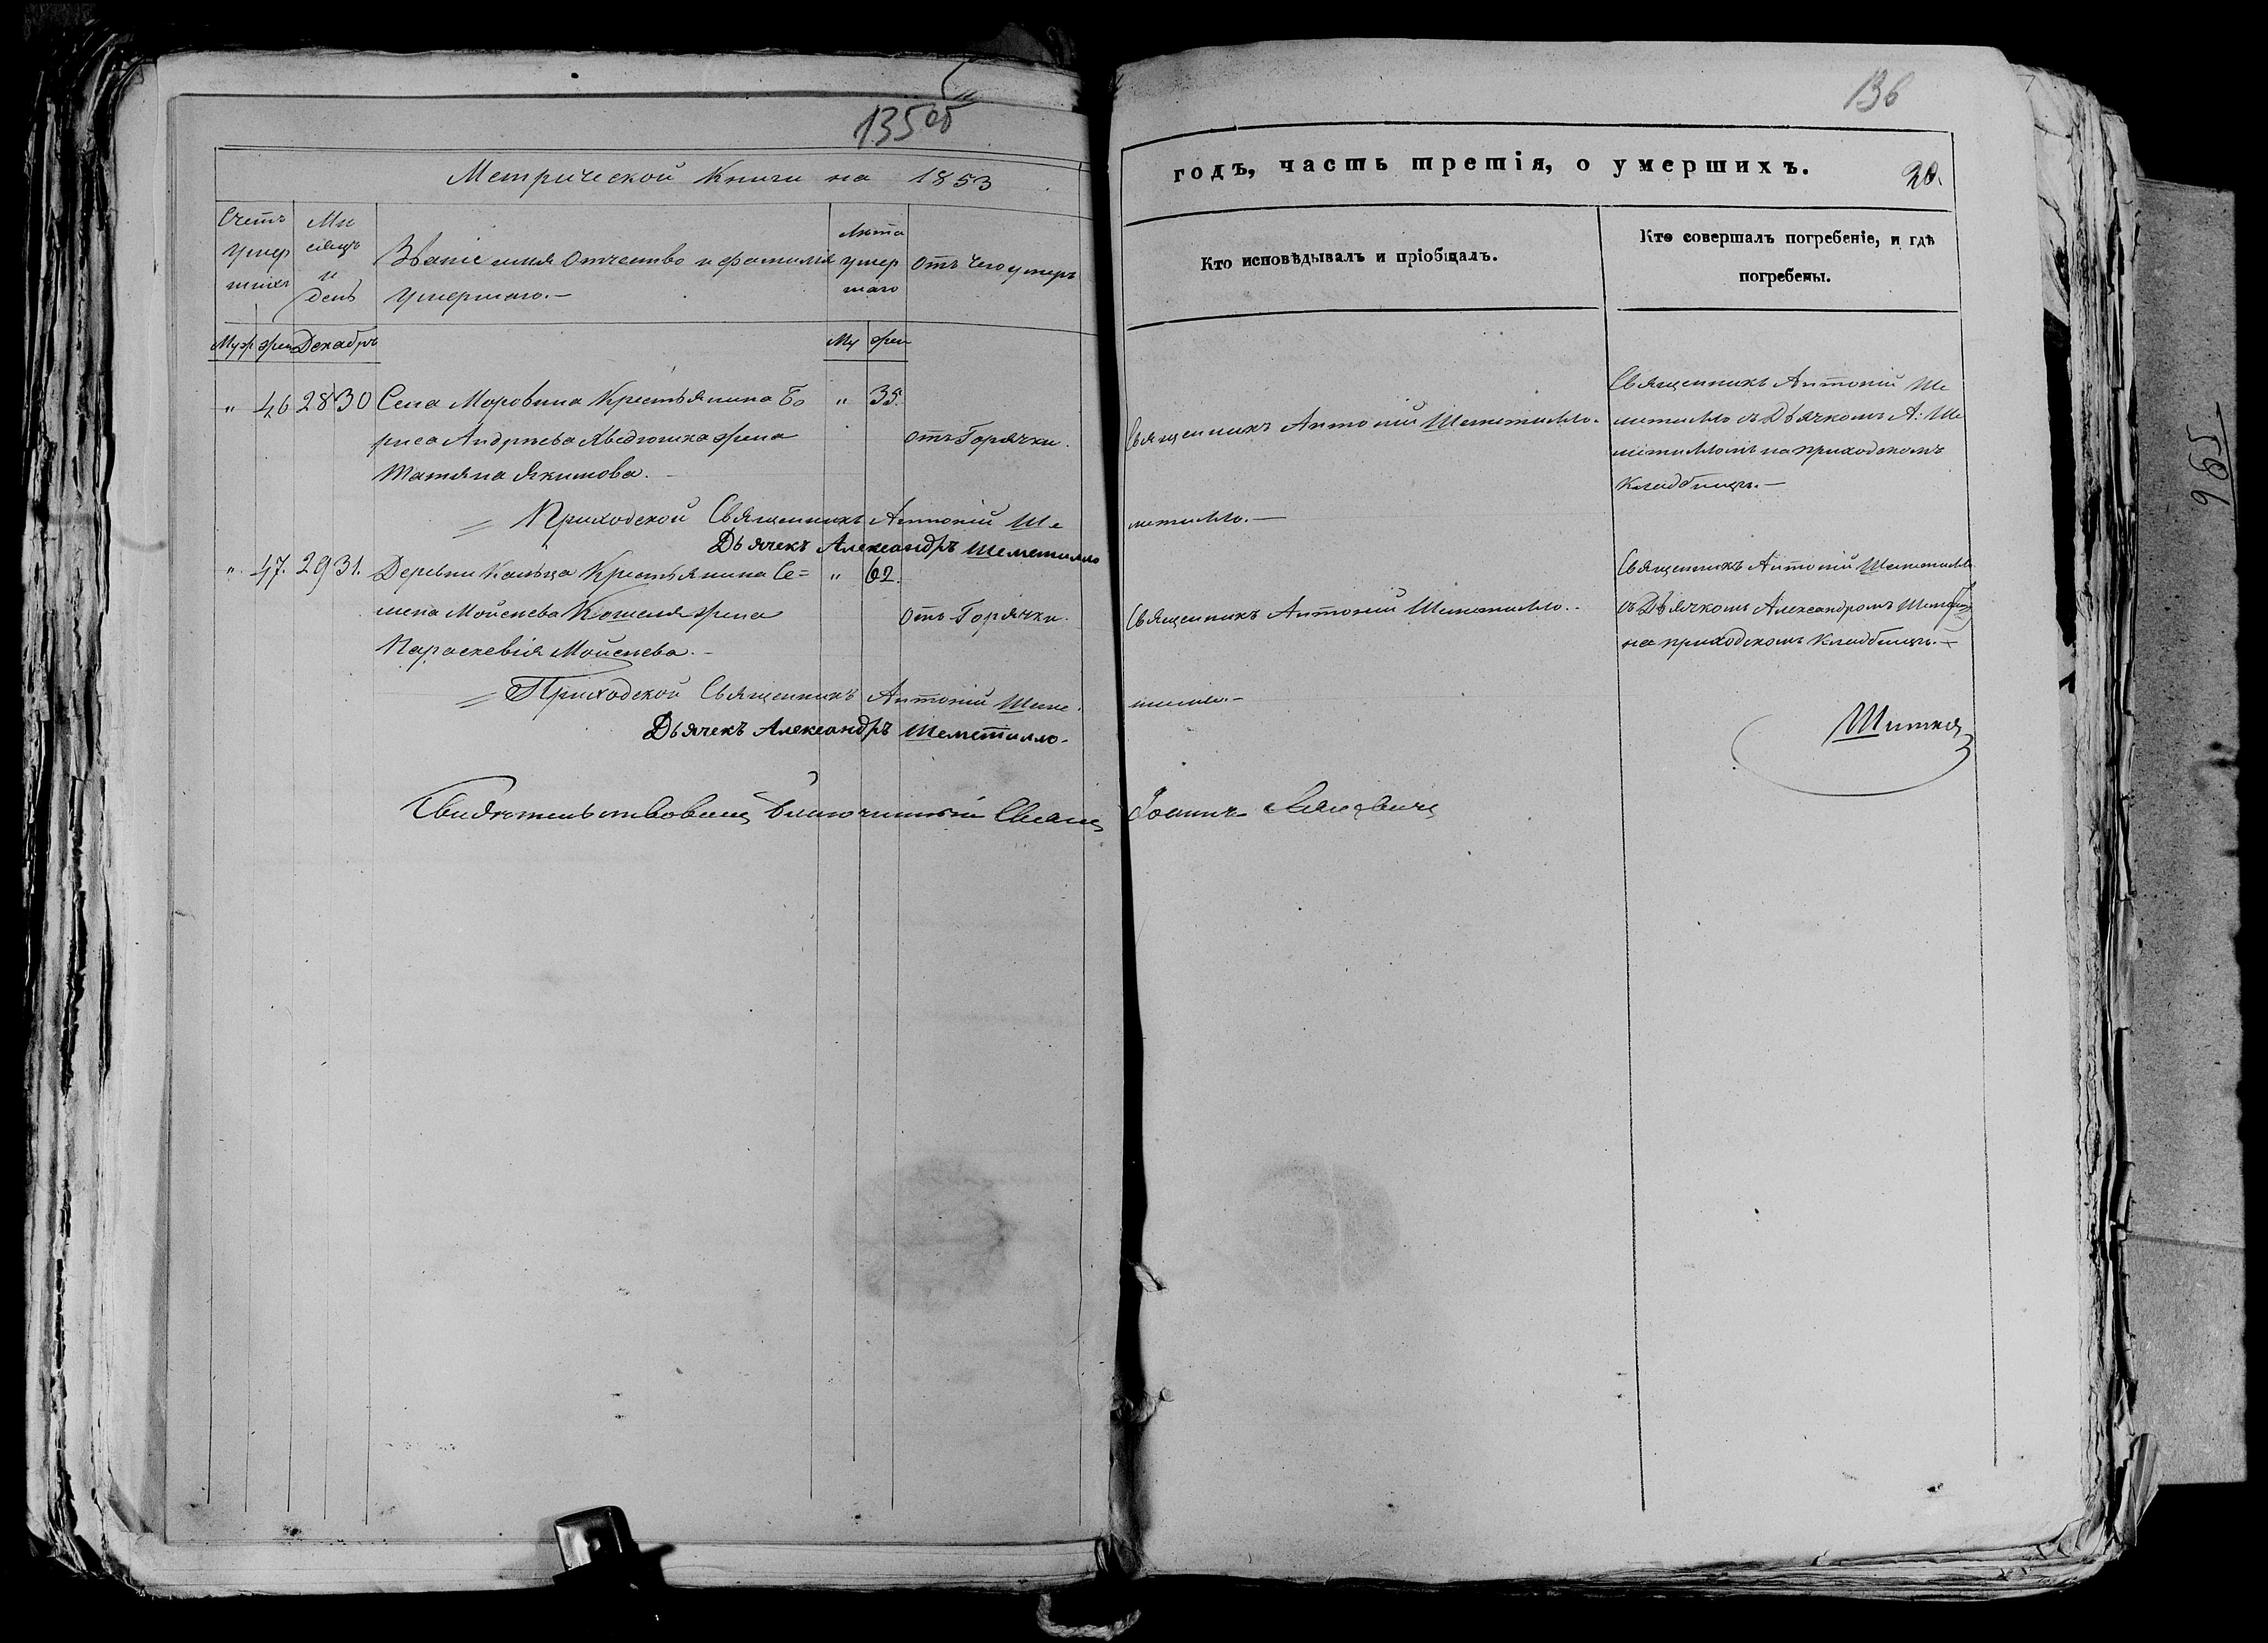 135об
136
Метрической Книги на 1853
годъ, часть третія, о умершихъ.
20.
Счетъ Умершихъ
Мѣсяцъ и день
Званіе имя Отчество и фамилія
Умершаго. —
Лѣта умершаго
Отъ Чего умеръ
Кто исповѣдывалъ и пріобщалъ.
Кто совершалъ погребеніе, и гдѣ
погребены.
Муж жен Декабрь
Му жен
" 46 28 30 Села Моровина Крестьянина Бо " 35.
риса Андреева Хведюшка жена
Татяна Якимова. —
отъ Горячки.
Священникъ Антоній Шеметилло.
Священникъ Антоній Ше
метилло съ Дьячкомъ А. Ше
метилломъ на приходскомъ
Кладбищѣ. —
= Приходской Священникъ Антоній Ше
метилло. —
Дьячекъ Александръ Шеметилло
". 47. 29 31. Деревни Крестьянина Се= " 62.
мена Мойсеева Кошеля жена
Параскевія Мойсеева. —
Отъ Горячки.
Священникъ Антоній Шеметилло.
Священникъ Антоній Шеметилло
съ Дьячкомъ Александромъ
на приходскомъ Кладбищѣ. —
= Приходской Священникъ Антоній Шеме
тилло. —
Дьячекъ Александръ Шеметилло.
Свидѣтельствовалъ Благочинный Свящ
Іоаннъ
965